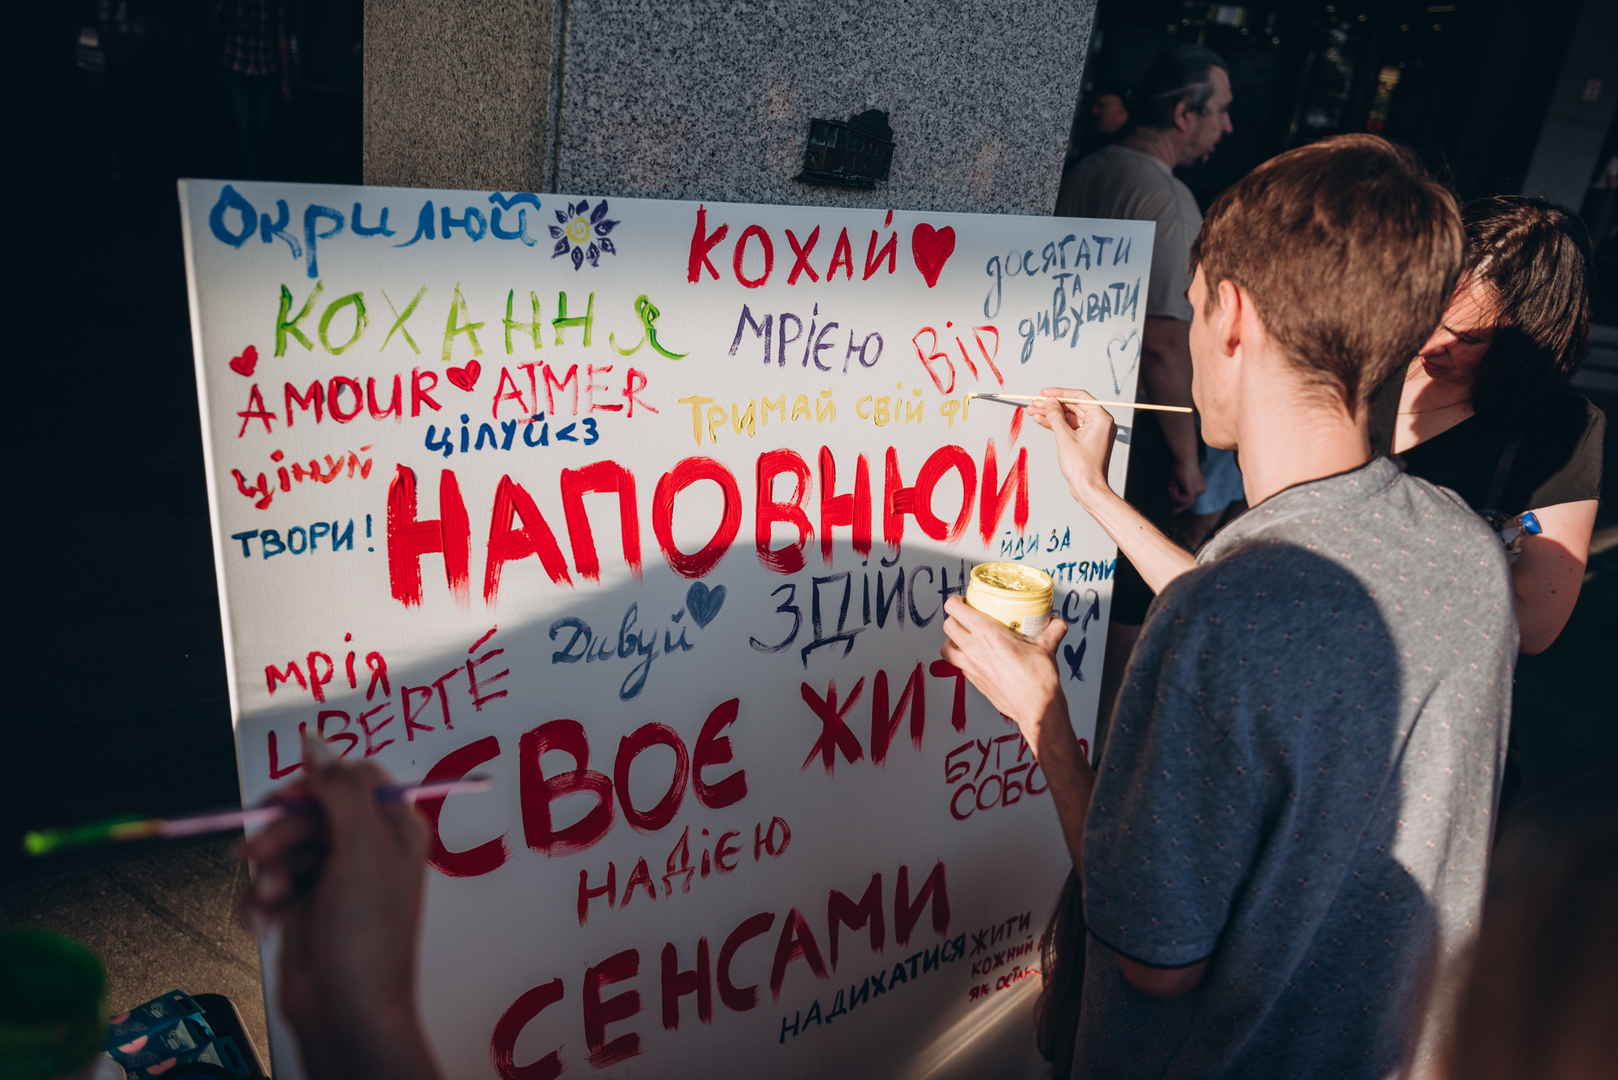 Окрилюй
КОХАЙ
досягати
та
дивувати
КОХАННЯ
МРІЄЮ
Вір
AMOUR AIMER
цілуй<3
Тримай свій фі
цінуй
НАПОВНЮЙ
ТВОРИ!
йди за
Дивуй
ЗДІЙСН
мрія
LIBERTÉ
СВОЄ ЖИТ
БУТИ
СОБО
НАДІЄЮ
СЕНСАМИ
НАДИХАТИСЯ
ЖИТИ
КОЖНИЙ
ЯК ОСТАН